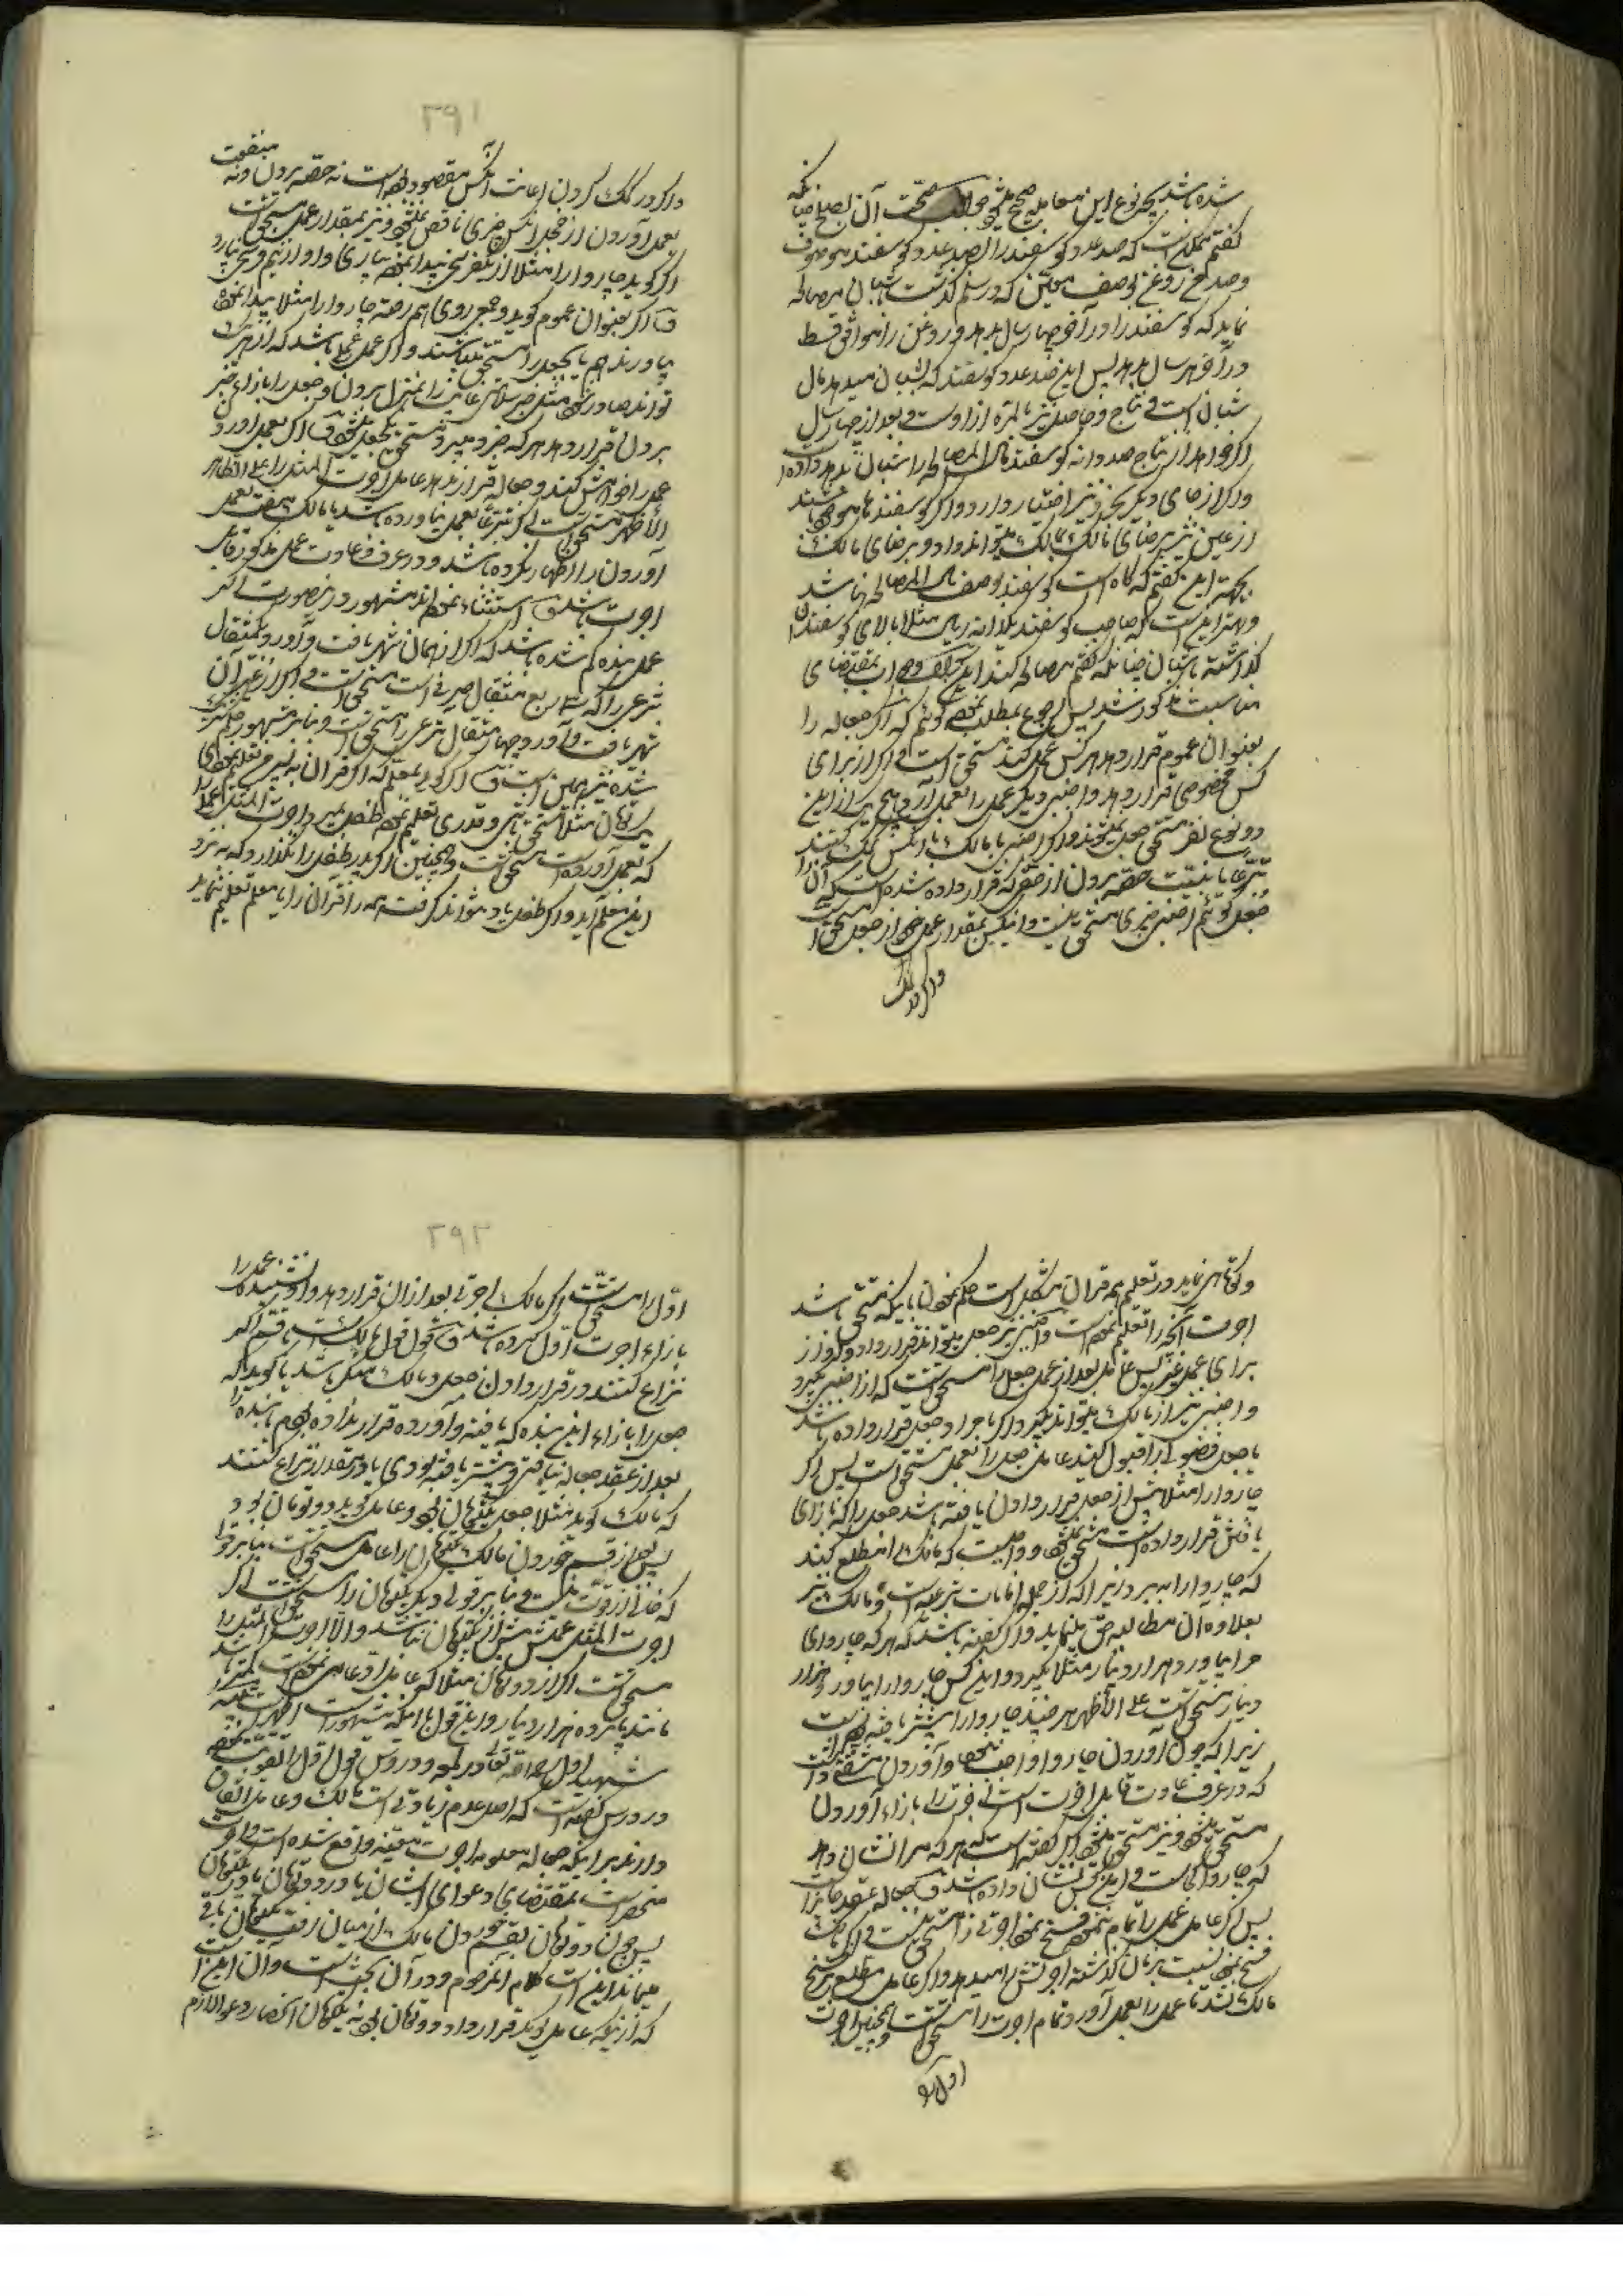 شده باشد بچه نوع این معامله صحیح میشود جواب صحت آن بصلح چنانکه
گفتم ممکن است که صد عدد گوسفند را بصد عدد گوسفند موصوف
وصد من روغن بوصف معین که در سلم گذشت بشبان مصالحه
نماید که گوسفند را در آخر چهار سال بدهد و روغن را موافق قسط
در آخر هر سال بدهد پس این صد عدد گوسفند که بشبان میدهد مال
شبان است و نتاج و حاصل نیز بالمره از اوست و بعد از چهار سال
اگر خواهد از نتاج صد دانه گوسفند مال المصالحه را شبان بدهد داده
واگر از جای دیگر بخرد نیز اختیار دارد و اگر گوسفندها موجود باشند
از عین نیز برضای مالک بمالک میتواند داد و برضای مالک
بجهة این گفتم که گاه است گوسفند بوصف مال المصالحه نباشد
وبهتر این است که صاحب گوسفند یکدانه ریس مثلا بالای گوسفندان
گذاشته باشبان چنانکه گفتم مصالحه کند این جواب بمقتضای
مناسبت مذکور شد پس رجوع بمطلب نموده گوئیم که اگر جعاله را
بعنوان عموم قرار دهد هر کس عمل کند مستحق است و اگر از برای
کس مخصوصی قرار دهد و اجنبی دیگر عمل را بعمل آرد هیچ یک از این
دو نوع نفر مستحق جعل نمیشوند و اگر اجنبی با مالک یا با آنکس کمک کنند
تبرعا یا بنیت حصه بردن از حقی که قرار داده شده است که آن را
جعل گوئیم اجنبی چیزی مستحق نیست و آنکس بمقدار عمل خود از جعل مستحق است
واگر در کمک
۳۹۱
واگر در کمک کردن اعانت آنکس مقصود بوده است نه حصه بردن و نه منفعت
بعمل آوردن از جعل آنکس چیزی ناقص نمیشود و نیز بمقدار عمل مستحق است
اگر گوید چاروا را مثلا از یکفرسخی پیدا نموده بیاری و او از نیم فرسخی بیارد
و اگر بعنوان عموم گوید و جمعی روی هم رفته چاروا را مثلا پیدا نموده
بیاورند همه یک جعل را مستحق میباشند و اگر عمل عملی باشد که از هر یک
تواند صادر شود مثل خبر سلامتی غایب را بمنزل بردن و جعل را بازاء خبر
بردن قرار دهد هر که خبر میبرد مستحق یکجعل میشود و اگر بعمل آوردن
عمل را خواهش کند و جعاله قرار ندهد عامل اجرت المثل را علی الظاهر
الأظهر مستحق است اگر تبرعا بعمل نیاورده باشد یا مالک بی منفعت بعمل
آوردن را اظهار نکرده باشد و در عرف و عادت عمل مذکور قابل
اجرت باشد و استثناء نموده اند مشهور در اینصورت اگر
عمل بنده گم شده باشد که اگر از همان شهر یافت و آورد یکمثقال
شرعی را که سه ربع مثقال صیرفی است مستحق است و اگر از غیر آن
شهر یافت و آورد چهار مثقال شرعی را مستحق است و بنا بر مشهور حکم شتر گم
شده نیز همین است و اگر گوید بمعلم که اگر قرآن به پسرم تعلیم نمودی
یکتومان مثلا مستحق باشی و قدری تعلیم نموده طفل بمیرد اجرت المثل عمل را
که بعمل آورده است مستحق است وهمچنین اگر پدر طفل را نگذارد که به نزد
این معلم آید و اگر طفل یاد نتواند گرفت همه را قرآن را یا معلم تعلیم ننماید
وکوتاهی نماید در تعلیم همه قرآن مشکل است حکم نمودن باینکه مستحق باشد
اجرت آنچه را تعلیم نموده است واجنبی نیز جعل میتواند قرار داد و اگر از
برای عمل غیر پس عامل بعد از عمل جعل را مستحق است که از اجنبی بگیرد
و اجنبی نیز از مالک میتواند بگیرد اگر با جواز او جعل قرار داده باشد
یا جعل فضولی را قبول کند عامل جعل را بعمل مستحق است پس اگر
چاروا را مثلا پیش از جعل قرار دادن یافته باشد جعل را که بازای
یافتن قرار داده است مستحق نمیشود و واجب است که مالک را مطلع کند
که چاروا را ببرد زیرا که از جمله امانات شرعیه است و مالک نیز
بعلاوه آن مطالبه حق مینماید و اگر گفته باشد که هر که چاروای
مرا بیاورد هزار دینار مثلا بگیرد و این کس چاروا را بیاورد هزار
دینار مستحق است علی الأظهر هر چند چاروا را پیشتر یافته بوده است
زیرا که چون آوردن چاروا واجب نبود و آوردن مشقتی داشت
که در عرف و عادت قابل اجرت است اجرت را بازاء آوردن
مستحق میشود و نیز مستحق میشود اگر گفته است که هر که مرا نشان دهد
که چاروا کجاست و این کس نشان داده باشد و جعاله عقد جایز است
پس اگر عامل عمل را تمام ننموده فسخ نمود اجرتی را مستحق نیست و اگر مالک
فسخ نمود نسبت بزمان گذشته اجرتش را میدهد و اگر عامل مطلع بر فسخ
مالک نشد تا عمل را بعمل آورد تمام اجرت را مستحق است و همچنین اجرت
اول را
۳۹۲
اول را مستحق است اگر مالک اجرتی بعد از آن قرار دهد و او نشنیده عمل را
بازاء اجرت اول کرده باشد و قول قول مالک است با قسم اگر
نزاع کنند در قرار دادن جعل و مالک منکر باشد یا گوید که
جعل را بازاء این بنده که یافته و آورده قرار نداده بودم یا بنده را
بعد از عقد جعاله نیافتی و پیشتر یافته بودی یا در مقدار نزاع کنند
که مالک گوید مثلا جعل یکتومان بود و عامل گوید دو تومان بود
پس بعد از قسم خوردن مالک یکتومان را عامل مستحق است بنا بر قولی
که خالی از قوت نیست و بنا بر قولی دیگر یکتومان را مستحق است اگر
اجرت المثل عملش بیش از یکتومان نباشد و الا اجرت المثل را
مستحق است اگر از دو تومان مثلا که عامل ادعا می نموده است کمتر باشد
مانند پانزده هزار دینار و این قول با آنکه مشهور است اظهر نیست
شهید اول رحمه الله تعالی در لمعه و دروس قول اول را تقویت نموده
و در دروس گفته است که اصل عدم زیادتی است و مالک و عامل اتفاق
دارند بر اینکه جعاله معلومه باجرت معینه واقع شده است و اجرت
منحصر است بمقتضای دعوای ایشان یا در دو تومان یا در یکتومان
پس چون دو تومان بقسم خوردن مالک از میان رفت یکتومان باقی
میماند این است کلام آنمرحوم و در آن بحث است و آن این است
که از اینکه عامل گوید قرار داد دو تومان بود نه یکتومان انحصار دعوا لازم